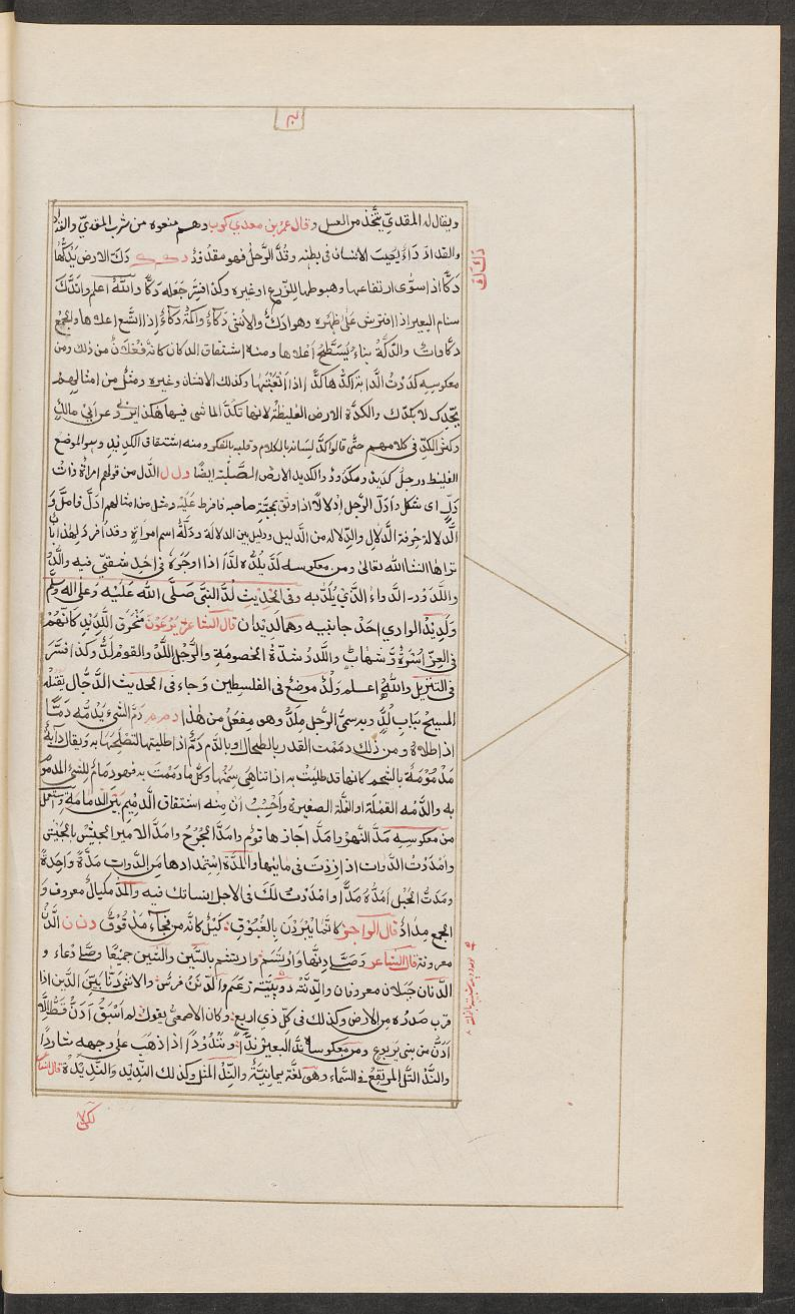 ويقال له المقدي يتّخذ من العسل وقال عمر بن معدي كرب وهم منعوه من شرب المقديّ والقداد
والقداد داء يصيب الانسان فى بطنه وقُدَّ الرّجل فهو مقدُودٌ د ك ك دَكَّ الارض يَدُكُّها
دَكًّا اذا سوّى ارتفاعها وهبوطها للزّرع او غيره وكذا فسّر جَعله دَكًّا والله اعلم واندَكّ
سنام البعير اذا افترش على ظهره وهو ادكّ والأنثى دَكّاءُ واكمة دَكّاءُ إذا اتّسع اعلاها والجمع
دكّاوات والدّكّة بناءٌ يُسَطَّح أعلاها ومنه اشتقاق الدكان كانه فُعْلان من ذلك ومن
معكوسه كدَدتُ الدّابة اكُدّها كدًّا اذا اتْعَبْتَها وكذلك الانسان وغيره ومثل من امثالهم
بجدّك لا بكدّك والكدّة الارض الغليظة لانها تكدّ الماشى فيها هكذا
وكثر الكدّ فى كلامهم حتّى قالوا كدّ لسانه بالكلام وقلبه بالفكر ومنه اشتقاق الكديد وهو الموضع
الغليظ ورجل كديد ومكدود والكديد الارض الصّلبة ايضًا د ل ل الدّل من قولهم امراة ذات
دَلٍّ اى شكل وأدَلّ الرّجل إدلالًا اذا وثق بمحبّة صاحبه فافرط عليه ومثل من امثالهم ادَلَّ فاملَّ و
الدّلالة حرفة الدّلّال والدّلالة من الدّليل ودليل بين الدلالة ودَلَّةُ اسم امراةٍ وقد افردَ لهذا بابٌ
تراها انشا الله تعالى ومن معكوسه لَدّ يلُدُّه لَدًّا اذا اوجَره فى احَد شقّى فيه والدُّ
واللّدود الدّواءُ الذى يُلَدّ به وفى الحديث لُدّ النبىّ صَلَّى الله عَلَيْهِ وَعلى اله وسلّم
وَلَدِيدُ الوادي احَدْ جانبيه وهما لَدِيدان قال الشاعر يَرْعَوْنَ مُنْخَرَق اللَّدِيْدِ كَأنّهُمْ
فى العِزّ أُسْرَةُ وَشهابٍ واللَّدد شدّة الخصومة والرّجل اللّد والقوم لُدٌّ وكذا فسَّرَ
فى التنزيل والله اعلم ولُدّ موضع فى الفلسطين وجاء فى الحديث الدّجال يقتله
المسيحُ بباب لُدٍّ وبه سمّى الرّجل مِلَدًّا وهو مِفعَل من هذا د م م دَمّ الشئ يَدُمّه دمًّا
اذا طلاهُ ومن ذلك دمَمْت القدر بالطحال او بالدّم دَمًّا اذا طليتها لتصلحها به ويقال دابّة
مَدْمُوْمَة بالشحم كانها قد طُليَت به اذا تناهى سمنها وكلّما دممت به فهو دِمام للشئ المدمُو
به والدّمه القملة او النّملة الصغيرة واحْسِبْ ان منه اشتقاق الدَّمِيْم بيّن الدمامة واستعمل
من معكوسِه مَدَّ النهْرُ وامَدَّ اجازها قوم وامَدّ الجُرْحُ وامدّ الامير الجيْش بالجيش
وامدَدْتُ الدّوات اذا زِدْتَ فى مائها والمدّة استمدادها من الدّوات مَدّةً واحدةً
ومَدَدتُ الحَبل امُدُّه مَدًّا وامدَدْتُ لك فى الاجل انساتك فيه والمُدّ مكيالٌ معروف و
الجمع مِدادٌ قال الراجز كانّما يَبْرُدن بالغَبُوْقِ كَيْلَ مِدادٍ مَدْقُوْقٍ د ن ن الدّن
معروفة قال الشاعر وَصَلّى على دَنِّها وَارْتَسَمْ وارتسم بالسّين والشين جميعًا وصَلّى دعاء و
الدّنّان جَبَلان معروفان والدِّنَّنَه دُوَيْبّة زَعَم والدَّنَن فرس والانثى دَنّا بَيّن الدَّنن اذا
قرب صَدره من الارض وكذلك فى كلّ ذي اربع وكان الاصمعىُّ يقول لم اَسْبق اَدَنُّ قَطُّ الّا
اَدَنّ من بنى يربوع ومن معكوسه ندّ البعيرُ ندًّا ونُدُوْدًا اذا ذهَب على وجهه شاردًا
والنّدّ التّل المرتفع فى السّماء وهى لغة يمانيّةٌ والنِّدّ المثل وكذلك النّدِيْد والنَّدِيْدة قال الشا